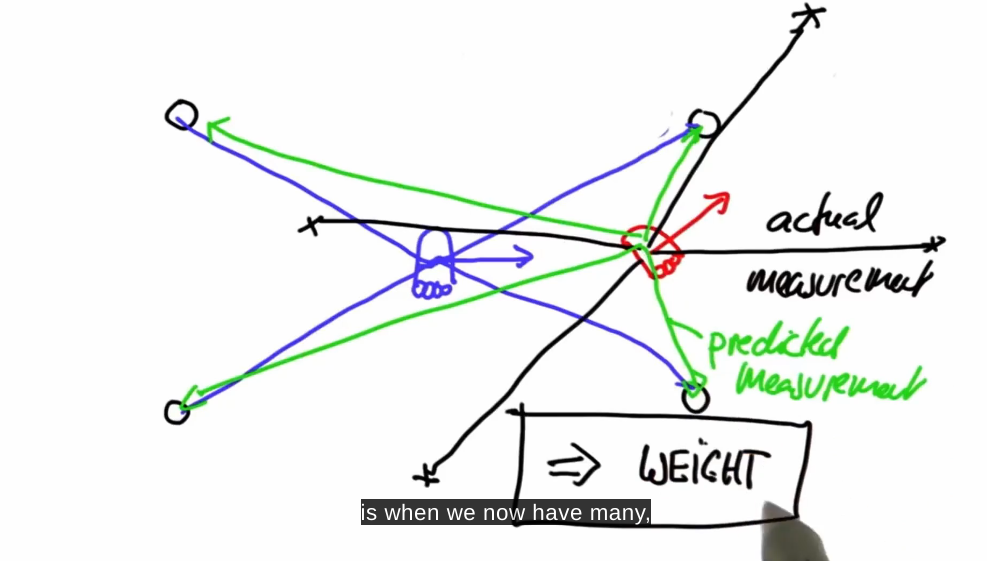 actual
measurement
predicted
measurement
⇒ WEIGHT
is when we now have many,